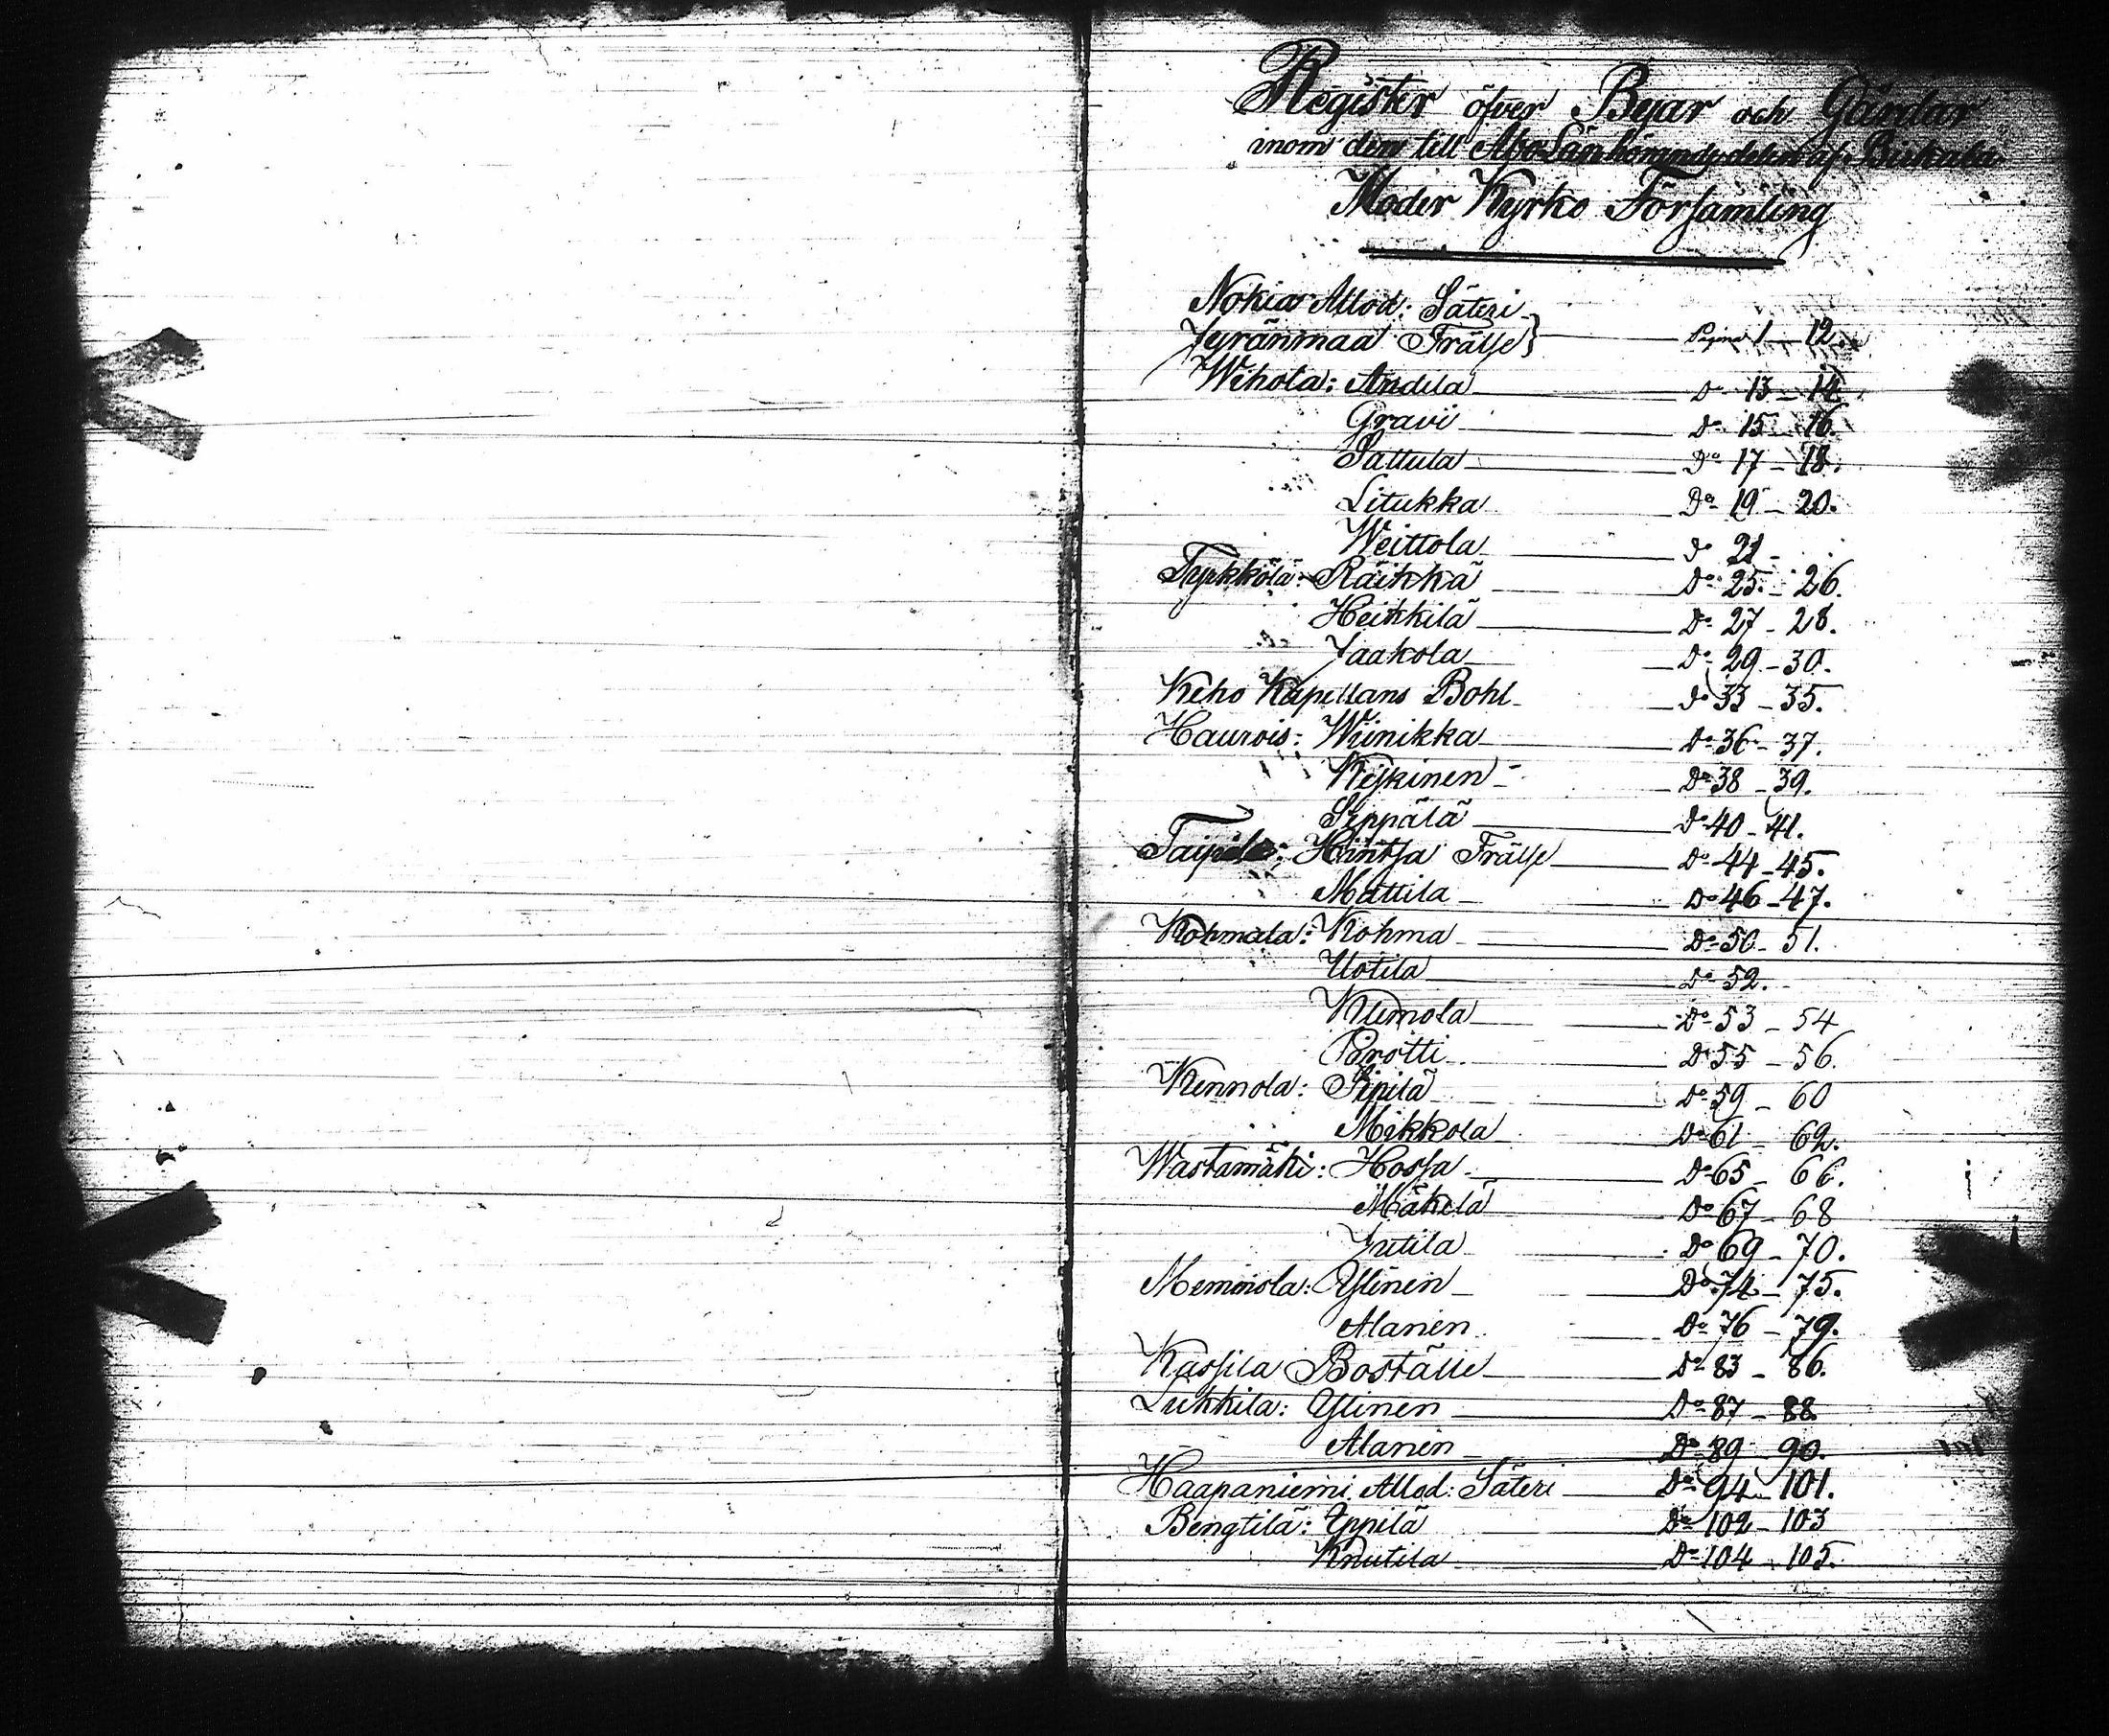 Register öfver Byar och Gårdar
inom den till Åbo Län hörande delen af Birkala
Moder Kyrko Församling
Nokia Allod: Säteri
Jyränmaa Frälse } Pagina 1 - 12.
Wihola: Andila D:o 13 - 14.
Gravi D:o 15 - 16.
Sattula D:o 17 - 18.
Litukka D:o 19 - 20.
Weittola D:o 21 -
Tyrkkölä: Räikkä D:o 25 - 26.
Heikkilä D:o 27 - 28.
Jaakola D:o 29 - 30.
Keho Kapellans Bohl D:o 33 - 35.
Haurois: Wiinikka D:o 36 - 37.
Keskinen D:o 38 - 39.
Seppälä D:o 40 - 41.
Taipale: Hintsa Frälse D:o 44 - 45.
Mattila D:o 46 - 47.
Kohmala: Kohma D:o 50 - 51.
Uotila D:o 52.
Klemola D:o 53 - 54
Pirotti D:o 55 - 56.
Kennola: Pipilä D:o 59 - 60
Mikkola D:o 61 - 62.
Wastamäki: Hossa D:o 65 - 66.
Mäkelä D:o 67 - 68
Jutila D:o 69 - 70.
Memmola: Ylinen D:o 74 - 75.
Alanen D:o 76 - 79.
Kassila Boställe D:o 83 - 86.
Lukkila: Ylinen D:o 87 - 88
Alanen D:o 89 - 90.
Haapaniemi Allod: Säteri D:o 94 - 101.
Bengtilä: Eppilä D:o 102 - 103
Knutila D:o 104 - 105.